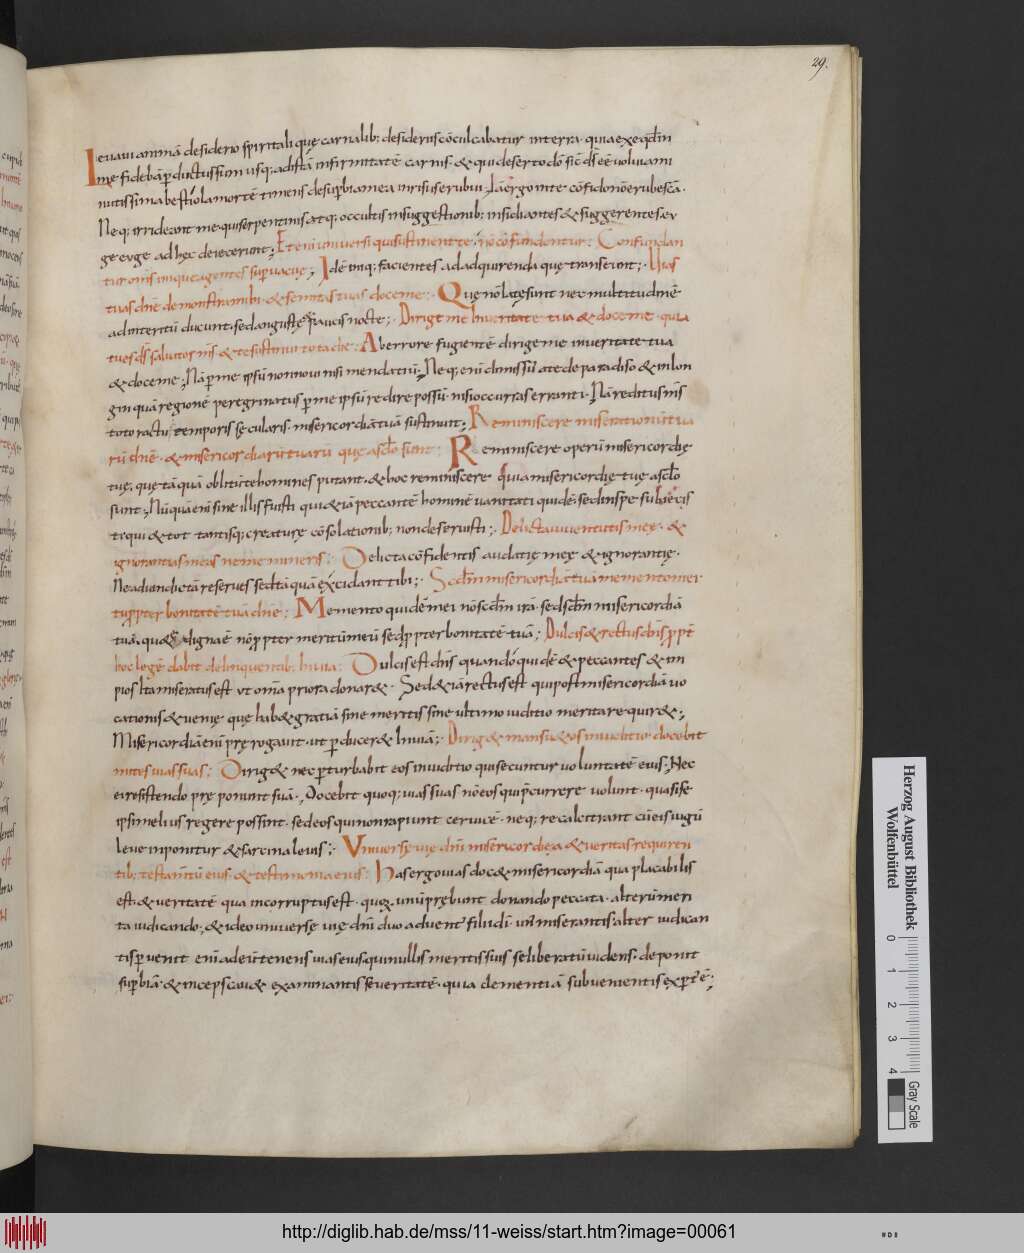 29.
leuaui animā desiderio spiritali quę carnalib; desideriis cōculcabatur interra· quia exeqdm
Inte fidebā p ductus sum usq; adistā infirmitatē carnis· & qui deserto dō sic ds eē uolui ami
nutissima bestiola mortē timens de supbia mea inrisus erubui; Iā ergo inte cōfido nō erubescā·
Neq; irrideant me· qui serpentinis atq; occultis insuggestionib; insidiantes & suggerentes eu
ge euge ad hęc deiecerunt; Etenim uniuersi qui sustinent te· nō cōfundentur; Confundan
tur om̄s inique agentes supuacuę; Idē iniq; facientes ad adquirenda quę transeunt; Uias
tuas dn̄e demonstra mihi· & semitas tuas doce me; Quę nō latę sunt nec multitudinē
ad interitū ducunt· sed angustę & paucis notę; Dirige me In ueritate tua & doce me· quia
tu es ds saluator m̄s· & te sustinui tota die; Ab errore fugientē dirige me in ueritate tua
& doce me; Nā p me ipsū non noui nisi mendatiū; Neq; eni dimissus a te de paradiso & in lon
ginquā regionē peregrinatus p me ipsū redire possū· nisi occurras erranti· Nā reditus m̄s
toto ractu temporis sęcularis· misericordiā tuā sustinuit; Reminiscere miserationū tua
rū dn̄e· & misericordiarū tuarū quę a sclo sunt; Reminiscere operū misericordię
tuę; quę tāquā oblitū te homines putant· & hoc reminiscere quia misericordię tuę a sclo
sunt; Nūquā eni sine illis fuisti qui & iā peccantē hominē uanitati quidē· sed in spe subiecis
ti· qui & tot tantisq; creaturę cōsolationib; non deseruisti; Delicta iuuentutis meę· &
ignorantias meas ne memineris; Delicta cōfidentis audatię meę & ignorantię·
Ne ad uindictā reserues sed tāquā excidant tibi; Scdm misericordiā tuā memento mei
tu ppter bonitatē tuā dn̄e; Memento quidē mei nō scdm irā· sed scdm misericordiā
tuā· quę te digna ē nō ppter meritū meū sed ppter bonitatē tuā; Dulcis & rectus dn̄s ppt
hoc legē dabit delinquentib; In uia; Dulcis est dn̄s quando qui dē & peccantes & im
pios Ita miseratus est ut omīa priora donar&· Sed & iā rectus est qui post misericordiā uo
cationis & uenię quę hab& gratiā sine meritis sine ultimo iuditio merita requir&;
Misericordiā eni pręrogauit· ut pducer& In uiā; Dirig& mansu&os in iuditio· docebit
mites uias suas; Dirig& nec pturbabit eos in iuditio qui secuntur uoluntatē eius; Nec
ei resistendo pręponunt suā; Docebit quoq; uias suas nō eos qui pcurrere uolunt· quasi se
ipsi melius regere possint· sed eos qui non rapiunt ceruicē· neq; recalcitrant cū eis iugū
leue inponitur & sarcina leuis; Uniuersę uię dn̄i misericordia & ueritas requiren
tib; testamtū eius & testimonia eius; Has ergo uias doc& misericordiā qua placabilis
est· & ueritatē qua incorruptus est· quoꝝ unū prębuit donando peccata· alterū meri
ta iudicando; & ideo uniuersę uię dn̄i duo aduent filii di· un̄ miserantis· alter iudican
tis puenit eni ad eū tenens uias eius· qui nullis meritis suis se liberatū uidens· deponit
supbiā· & inceps cau& examinantis seueritatē· quia clementiā subuenientis expt ē;
Herzog August Bibliothek
Wolfenbüttel
0 1 2 3 4
Gray Scale
http://diglib.hab.de/mss/11-weiss/start.htm?image=00061